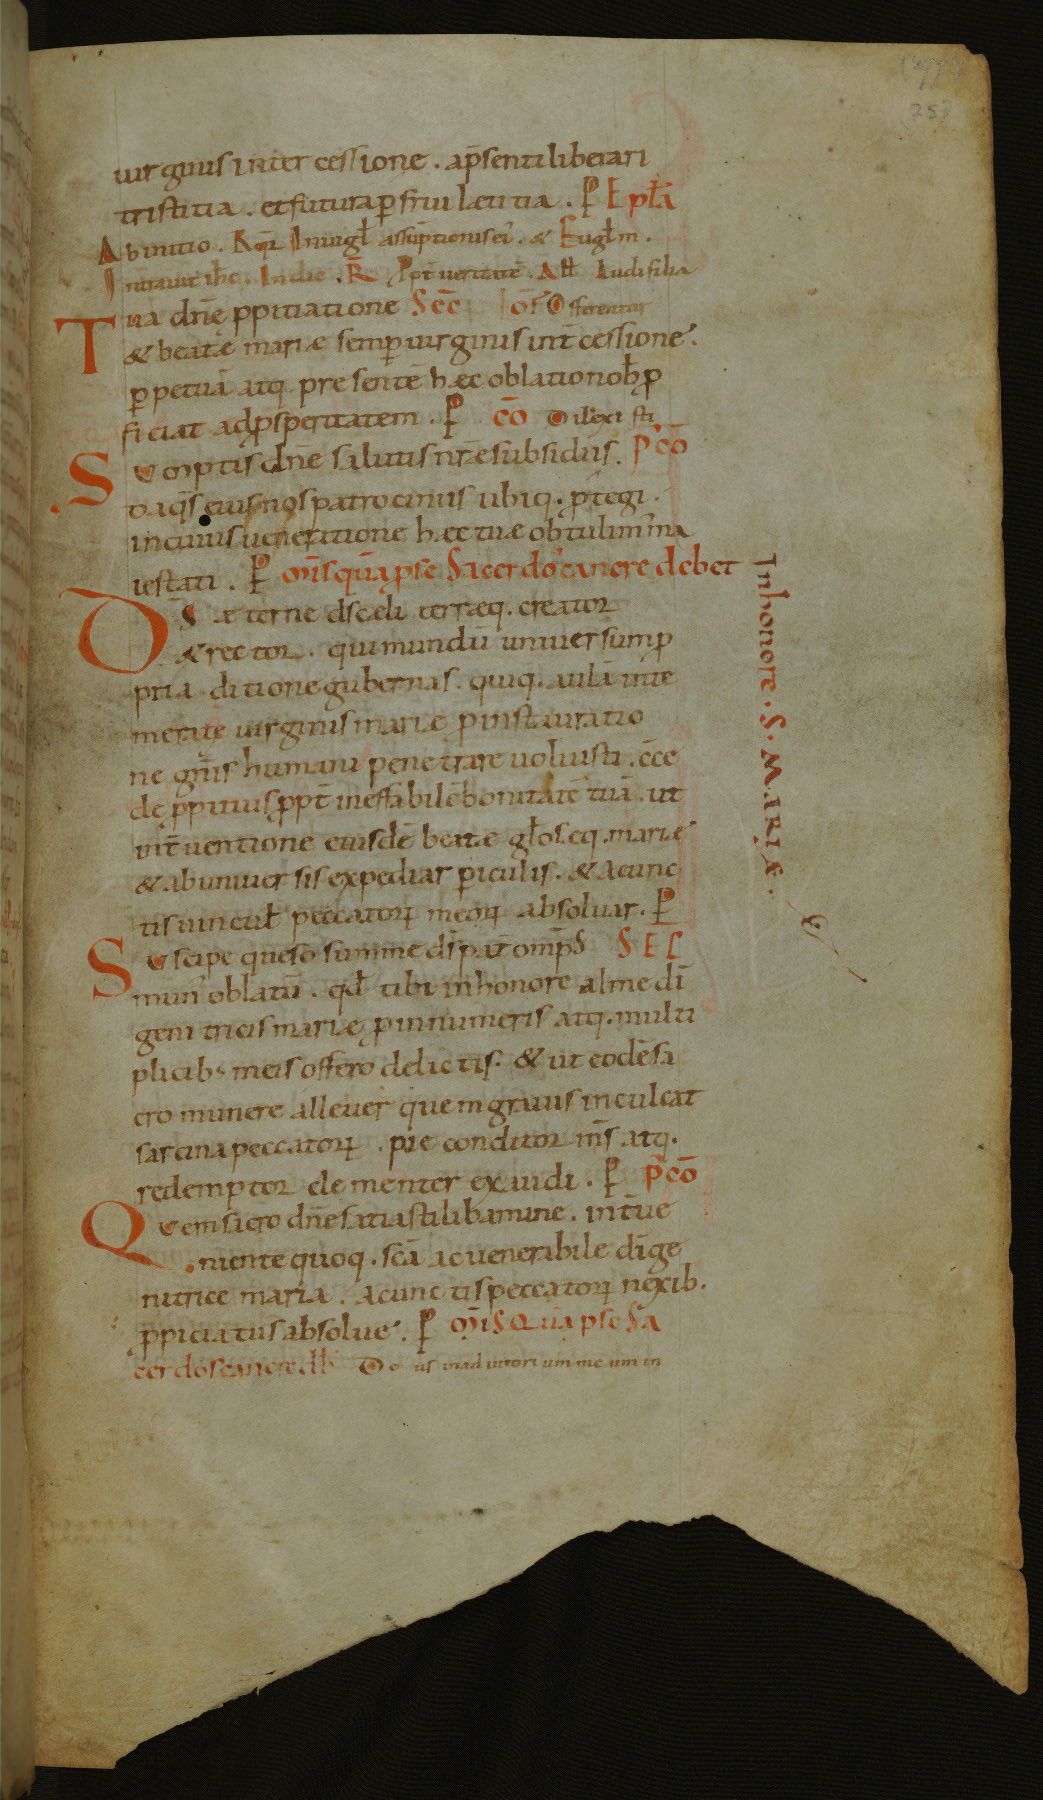 uirginis intercessione . ap̄senti liberari
tristitia . et futura ꝑfrui lætitia . P EpłA
Ab initio . Inuigł assūptionis ei' . & Eugłm .
Intrauit ih̄c . In die . R̄ Ꝓpt̄ ueritatē . Ałł Audi filia
Tua dn̄ę ꝓpitiatione SēC of̄ Offerentur
& beatæ mariæ semꝑ uirginis int̄cessione .
ꝑpetuā atq. presentē hæc oblatio nob̄ ꝓ
ficiat ad ꝓsperitatem . P c̄o Dilexisti
Sumptis dn̄e salutis nr̄æ subsidiis . P'c̄o
Da q̄s eius nos patrociniis ubiq. ꝓtegi .
in cuius ueneratione hæc tuæ obtulim' ma
iestati . P Mis̄ quā ꝑ se Sacerdos canere debet
DS æterne ds̄ cæli terræq. creator
& rector . qui mundū uniuersum ꝓ
pria ditione gubernas . quiq. aulā inte
meratæ uirginis mariæ ꝓ instauratio
ne gn̄is humani penetrare uoluisti . c̄ce
de ꝓpitius ꝓpt̄ ineffabilē bonitatē tuā . ut
int̄uentione eiusdē beatæ głoseq. mariæ
& ab uniuersis expediar ꝑiculis . & a cunc
tis uinculł peccatoꝝ meoꝝ absoluar . P
Suscipe queso summe ds̄ pat̄ omp̄s SEC
mun' oblatū . qd̄ tibi in honore alme dī
genitricis mariæ ꝓ innumeris atq. multi
plicib; meis offero delictis . & ut eodē sa
cro munere alleuer quem grauis inculcat
sarcina peccatoꝝ . pie conditor ms̄ atq.
redemptor clementer exaudi . P P'c̄o
Quem sacro dn̄e satiasti libamine . int̄ue
niente quoq. sc̄a ac uenerabile dīge
nitrice maria . a cunctis peccatoꝝ nexib.
ꝓpiciatus absolue . P MIS QUā ꝑ se SA
cerdos canere db̄ Deus in adiutorium meum in
In honore . S . MARIÆ .